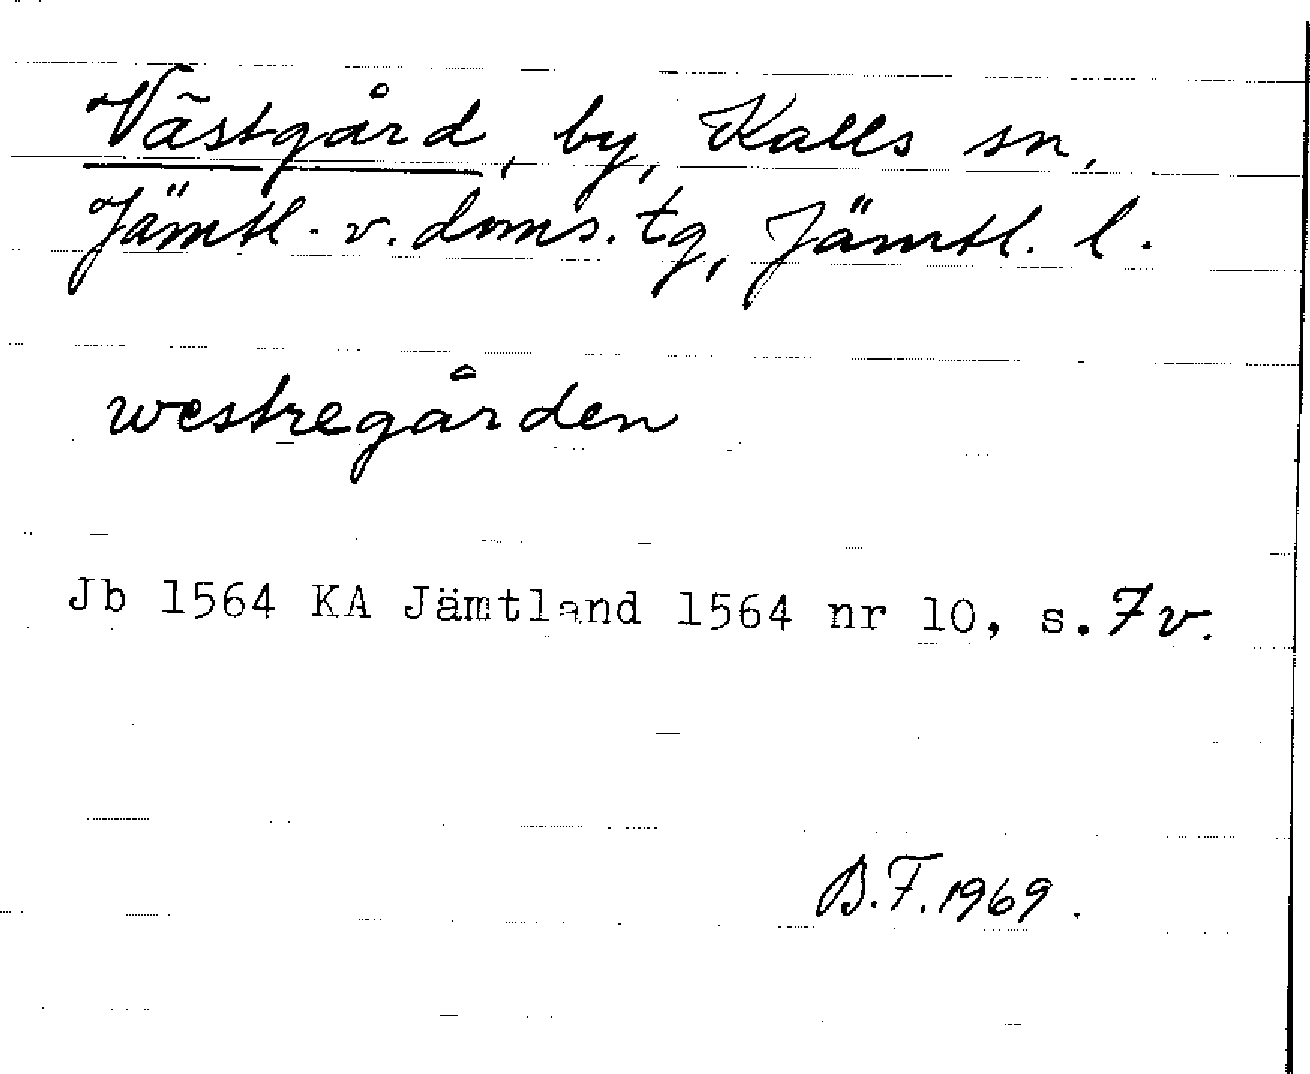 Västgård, by, Kalls sn,
Jämtl. v. doms. tg, Jämtl. l.
westregården
Jb 1564 KA Jämtland 1564 nr 10, s. 7v.
B.F. 1969.